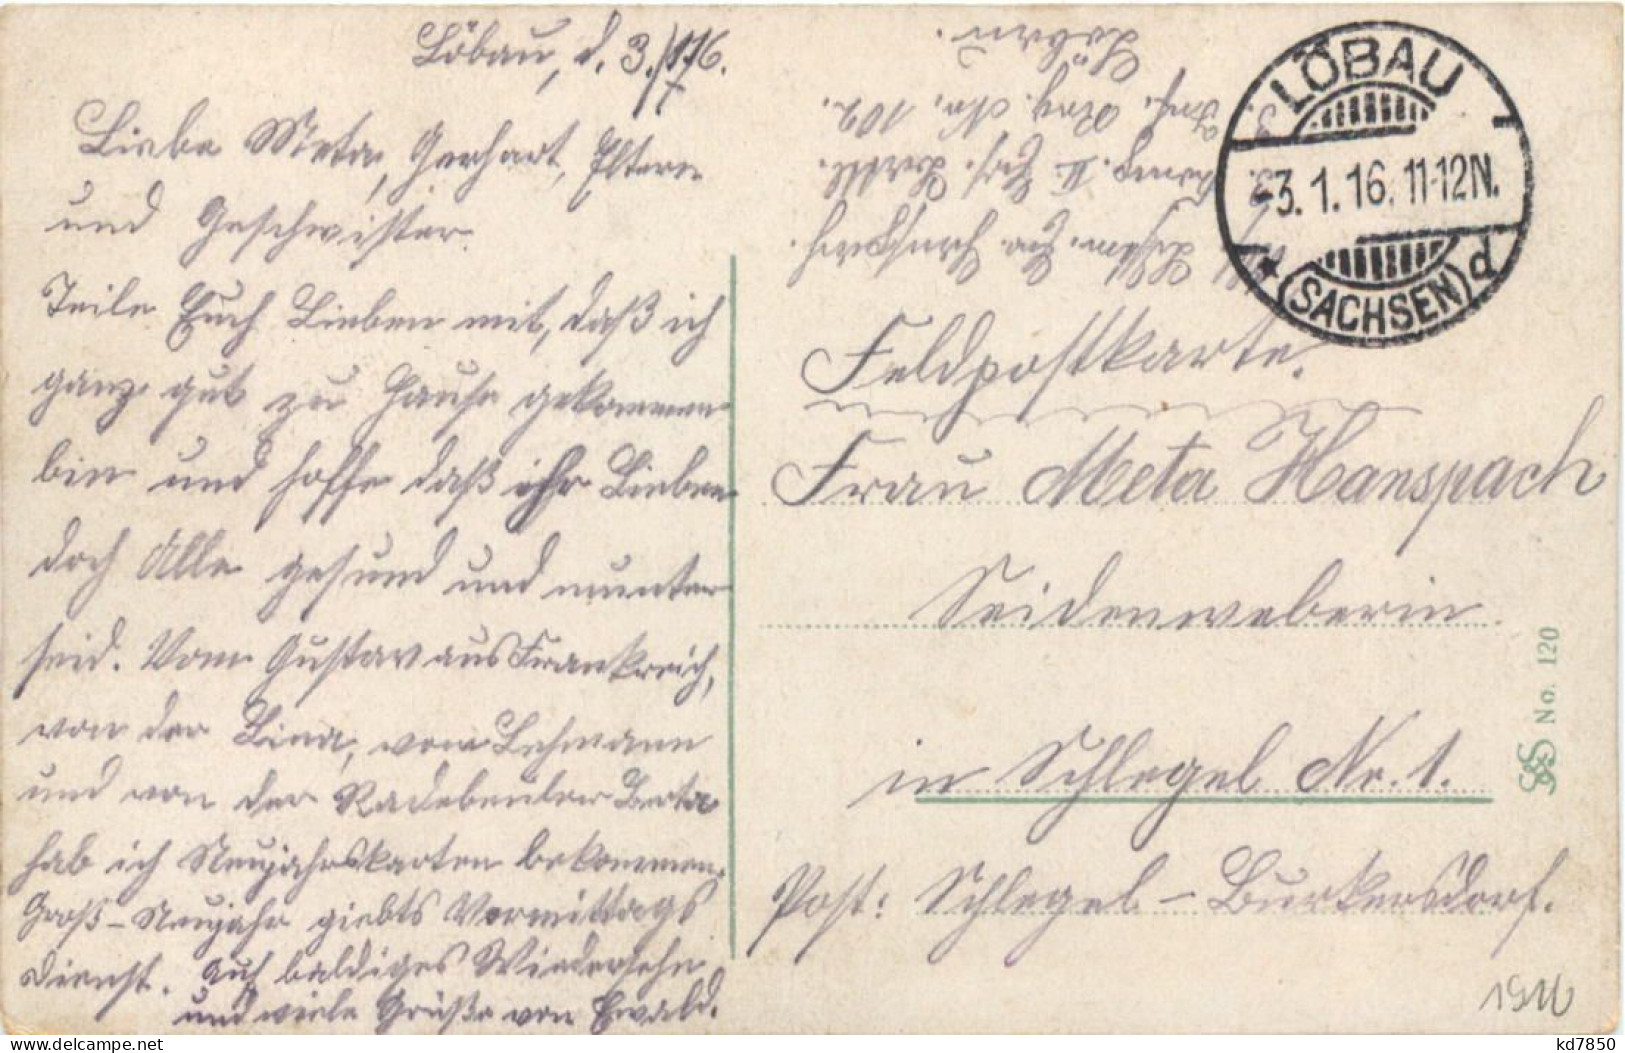 Löbau, d. 3./1 16.
Liebe Meta, Gerhart, Eltern
und Geschwister.
Teile Euch Lieben mit, daß ich
ganz gut zu Hause gekommen
bin und hoffe daß ihr Lieben
doch Alle gesund und munter
seid. Vom Gustav aus Frankreich,
von der Lina, vom Lehmann
und von der Radebeuler Berta
hab ich Neujahrskarten bekommen.
Groß-Neujahr giebts Vormittags
dienst. Auf baldiges Wiedersehn
und viele Grüße von Ewald.
Löbau.
Inf. Reg. No. 102.
II. Ers. Batll.
Hanspach.
LÖBAU
-3.1.16. 11-12N.
* (SACHSEN) d
Feldpostkarte.
Frau Meta Hanspach
Seidenweberin
in Schlegel Nr. 1.
Post: Schlegel - Burkersdorf.
S&S No. 120
1916
kd7850